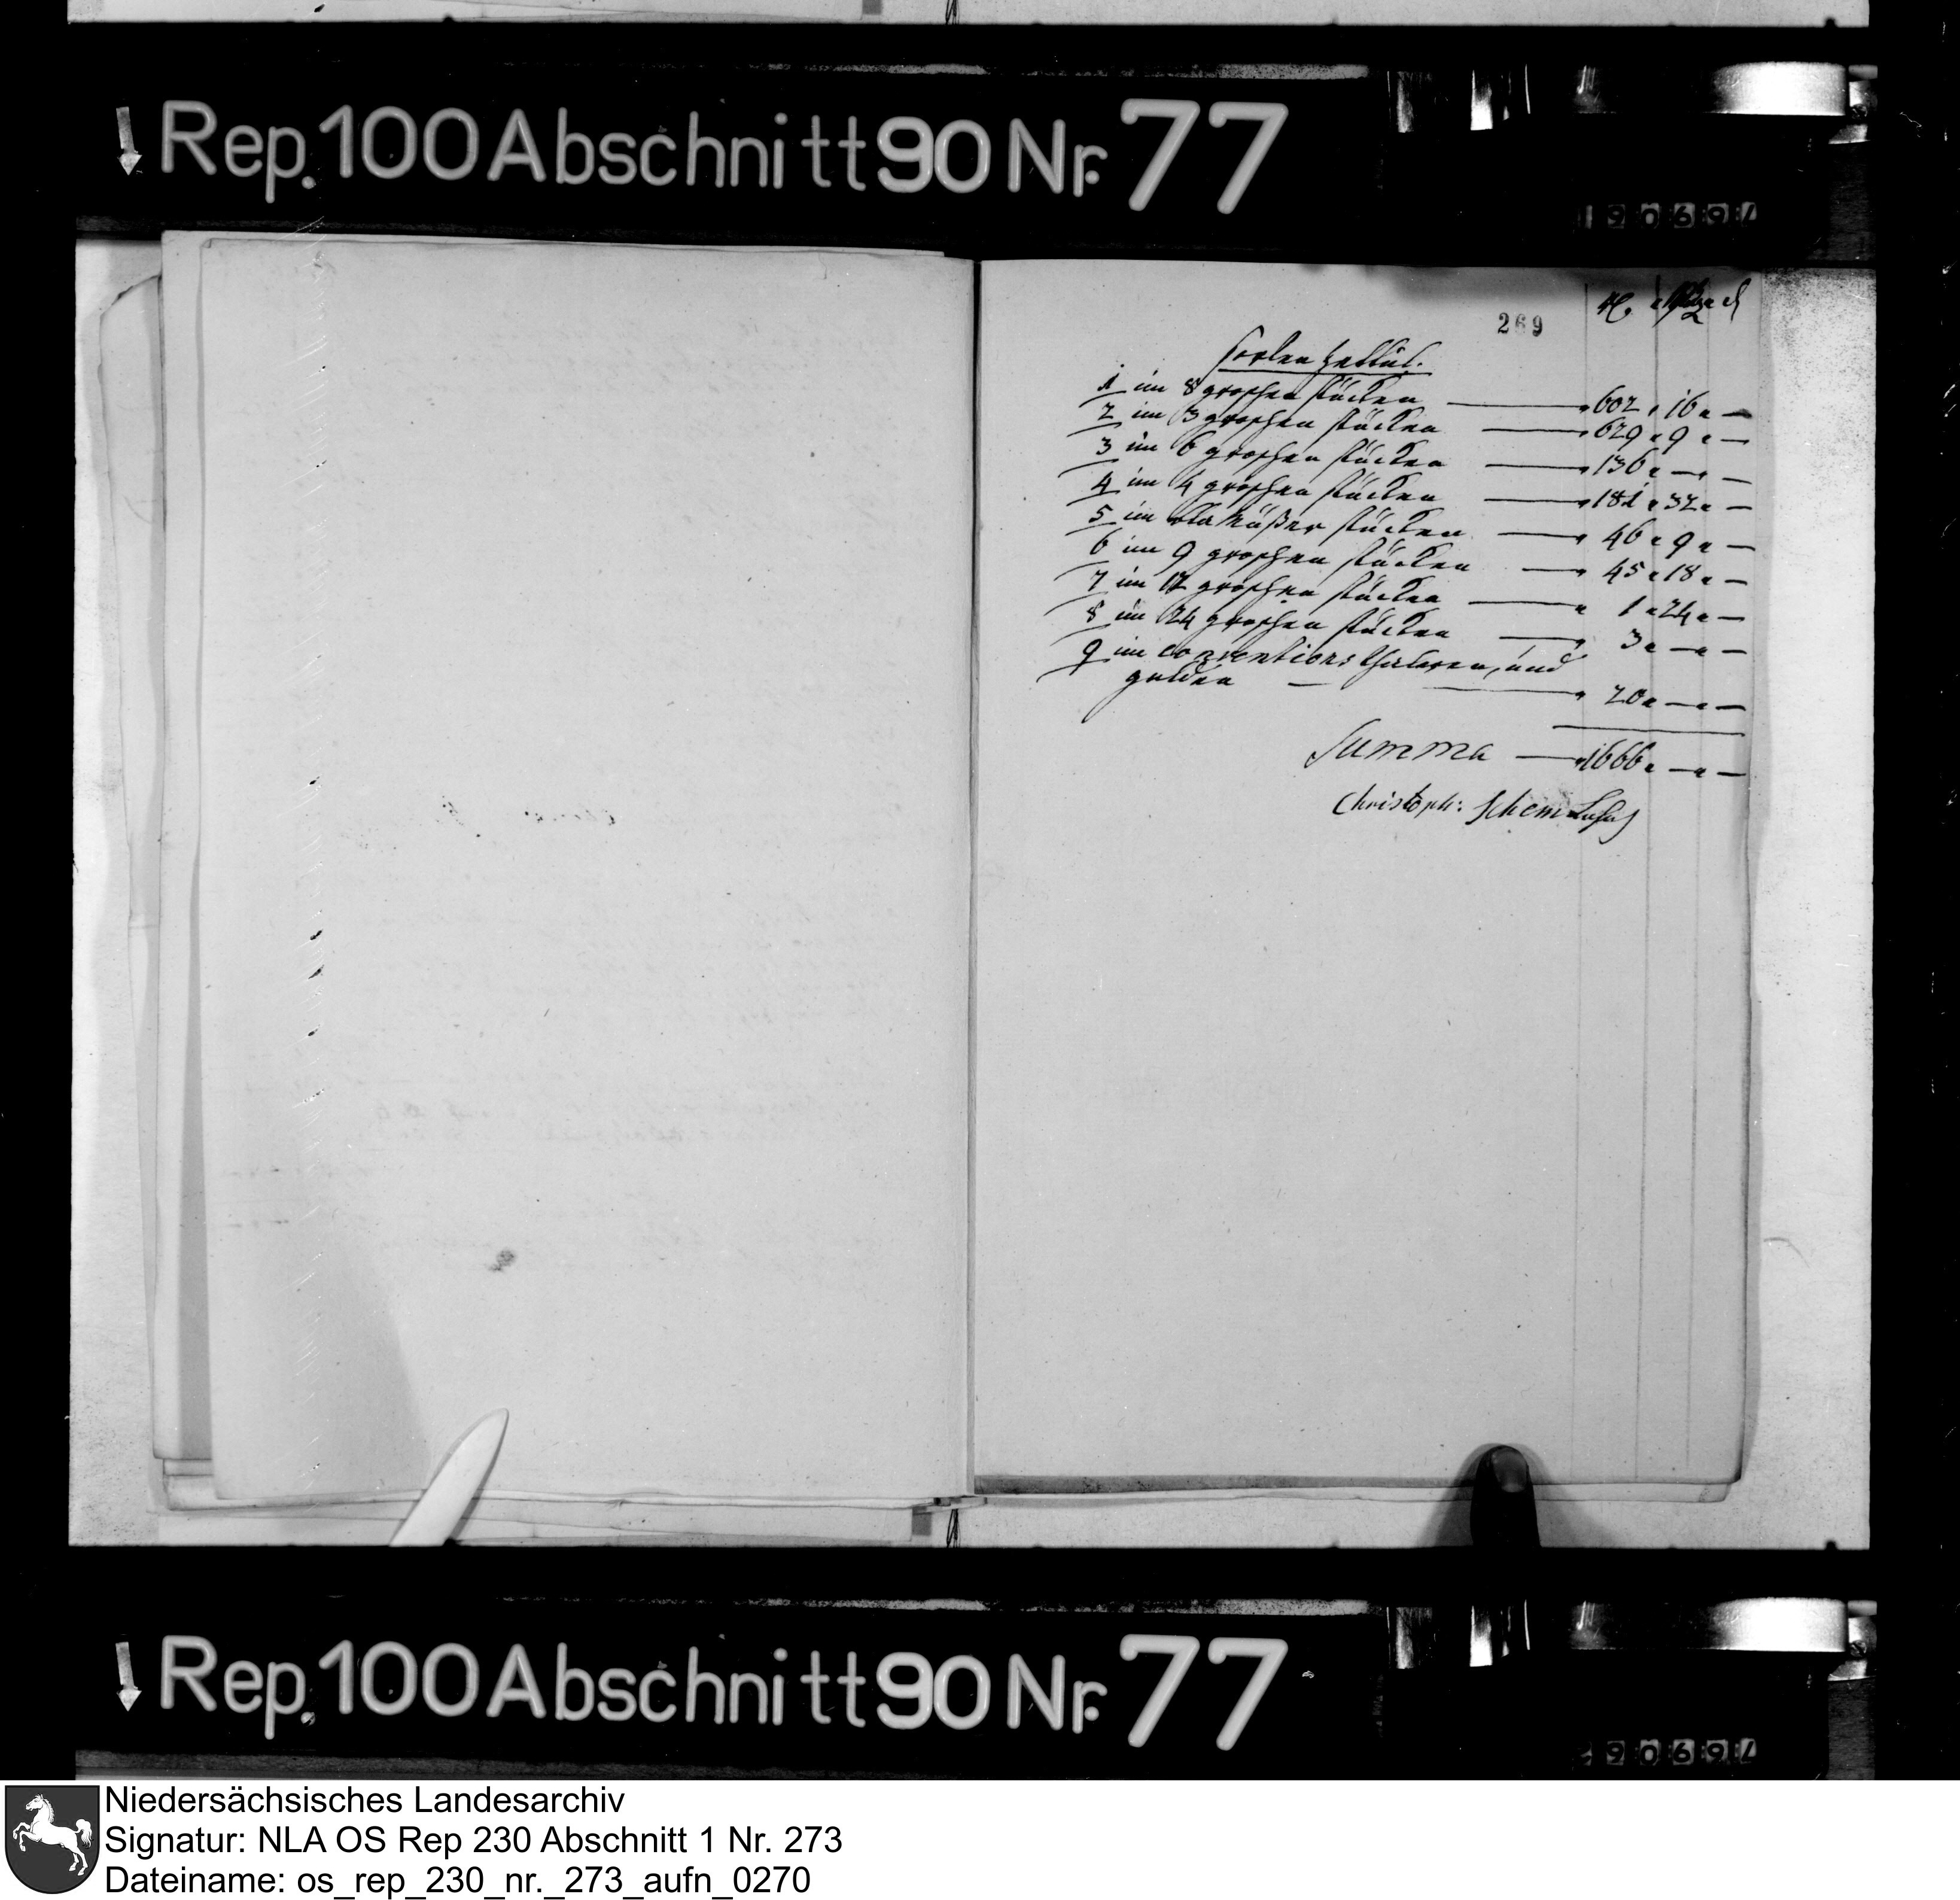 Rep. 100 Abschnitt 90 Nr. 77
19069/
269
Sorten Zettul.
1 im 8 groschen stücken — 602 „ 16 „ —
2 im 3 groschen stücken — 629 „ 9 „ —
3 im 6 groschen stücken — 136 „ — „ —
4 im 4 groschen stücken — 181 „ 32 „ —
5 im stücken — 46 „ 9 „ —
6 im 9 groschen stücken — 45 „ 18 „ —
7 im 12 groschen stücken — 1 „ 24 „ —
8 im 24 groschen stücken — 3 „ — „ —
9 im conventions thaleren, und
gulden — — 20 „ — „ —
Summa — 1666 „ — „ —
Christoph: Schem
Rep. 100 Abschnitt 90 Nr. 77
9069/
Niedersächsisches Landesarchiv
Signatur: NLA OS Rep 230 Abschnitt 1 Nr. 273
Dateiname: os_rep_230_nr._273_aufn_0270